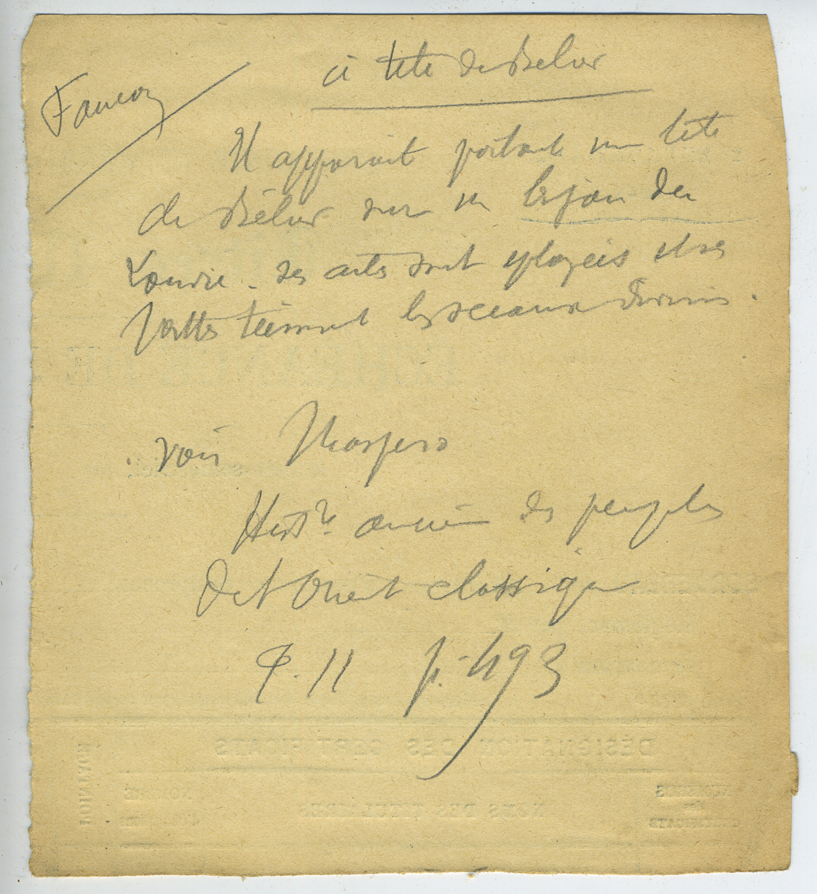 Faucon
à tête de Bélier
Il apparait portant une tête
de Bélier sur un bijou du
Louvre. Ses ailes sont éployées et ses
pattes tiennent les sceaux divins.
. voir Maspero
Hist re ancienne des peuples
de l'Orient classique
T. II p. 493
DÉSIGNATION DES CERTIFICATS
NUMÉROS
NOMS DES TITULAIRES